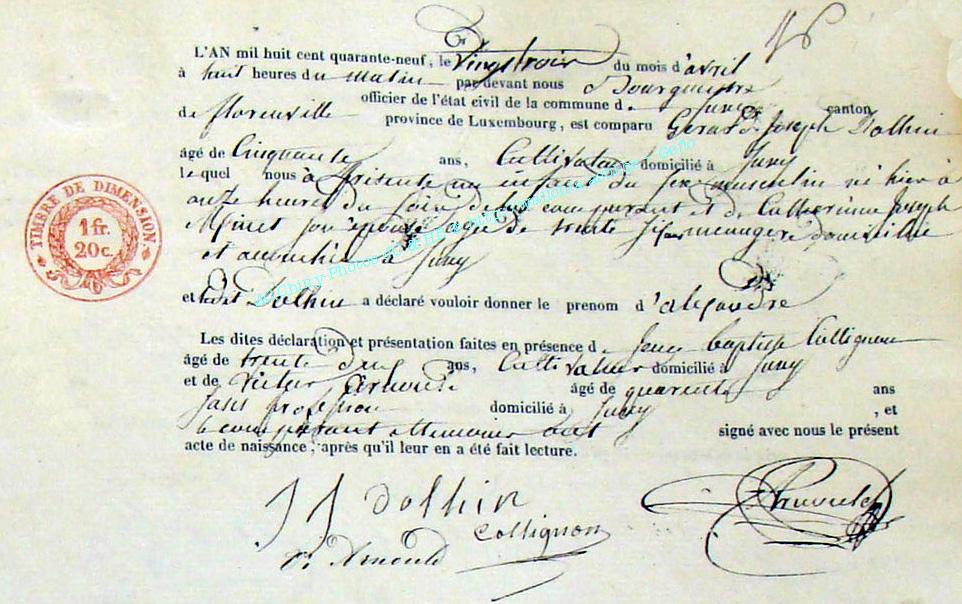 L'AN mil huit cent quarante-neuf, le Vingt trois du mois d'avril
à huit heures du Matin par devant nous Bourgmestre
officier de l'état civil de la commune de Juny canton
de florenville province de Luxembourg, est comparu Gerard Joseph Dolhin
âgé de Cinquante ans, Cultivateur domicilié à Juny
lequel nous à présenté un enfant du sexe masculin né hier à
onze heures du soir de lui comparant et de Catherinne Joseph
Minet son épouse agée de trente menagere domiciliée
et accouchée à Juny
et ledit Dolhin a déclaré vouloir donner le prenom d'alexandre
Les dites déclaration et présentation faites en présence de Jean baptiste Collignon
âgé de trente deux ans, Cultivateur domicilié à Juny
et de Victor Arnould âgé de quarante ans
sans profession domicilié à Juny , et
le comparant et temoins ont signé avec nous le présent
acte de naissance, après qu'il leur en a été fait lecture.
TIMBRE DE DIMENSION
1 fr.
20 c.
J J Dolhin
Collignon
V. Arnould